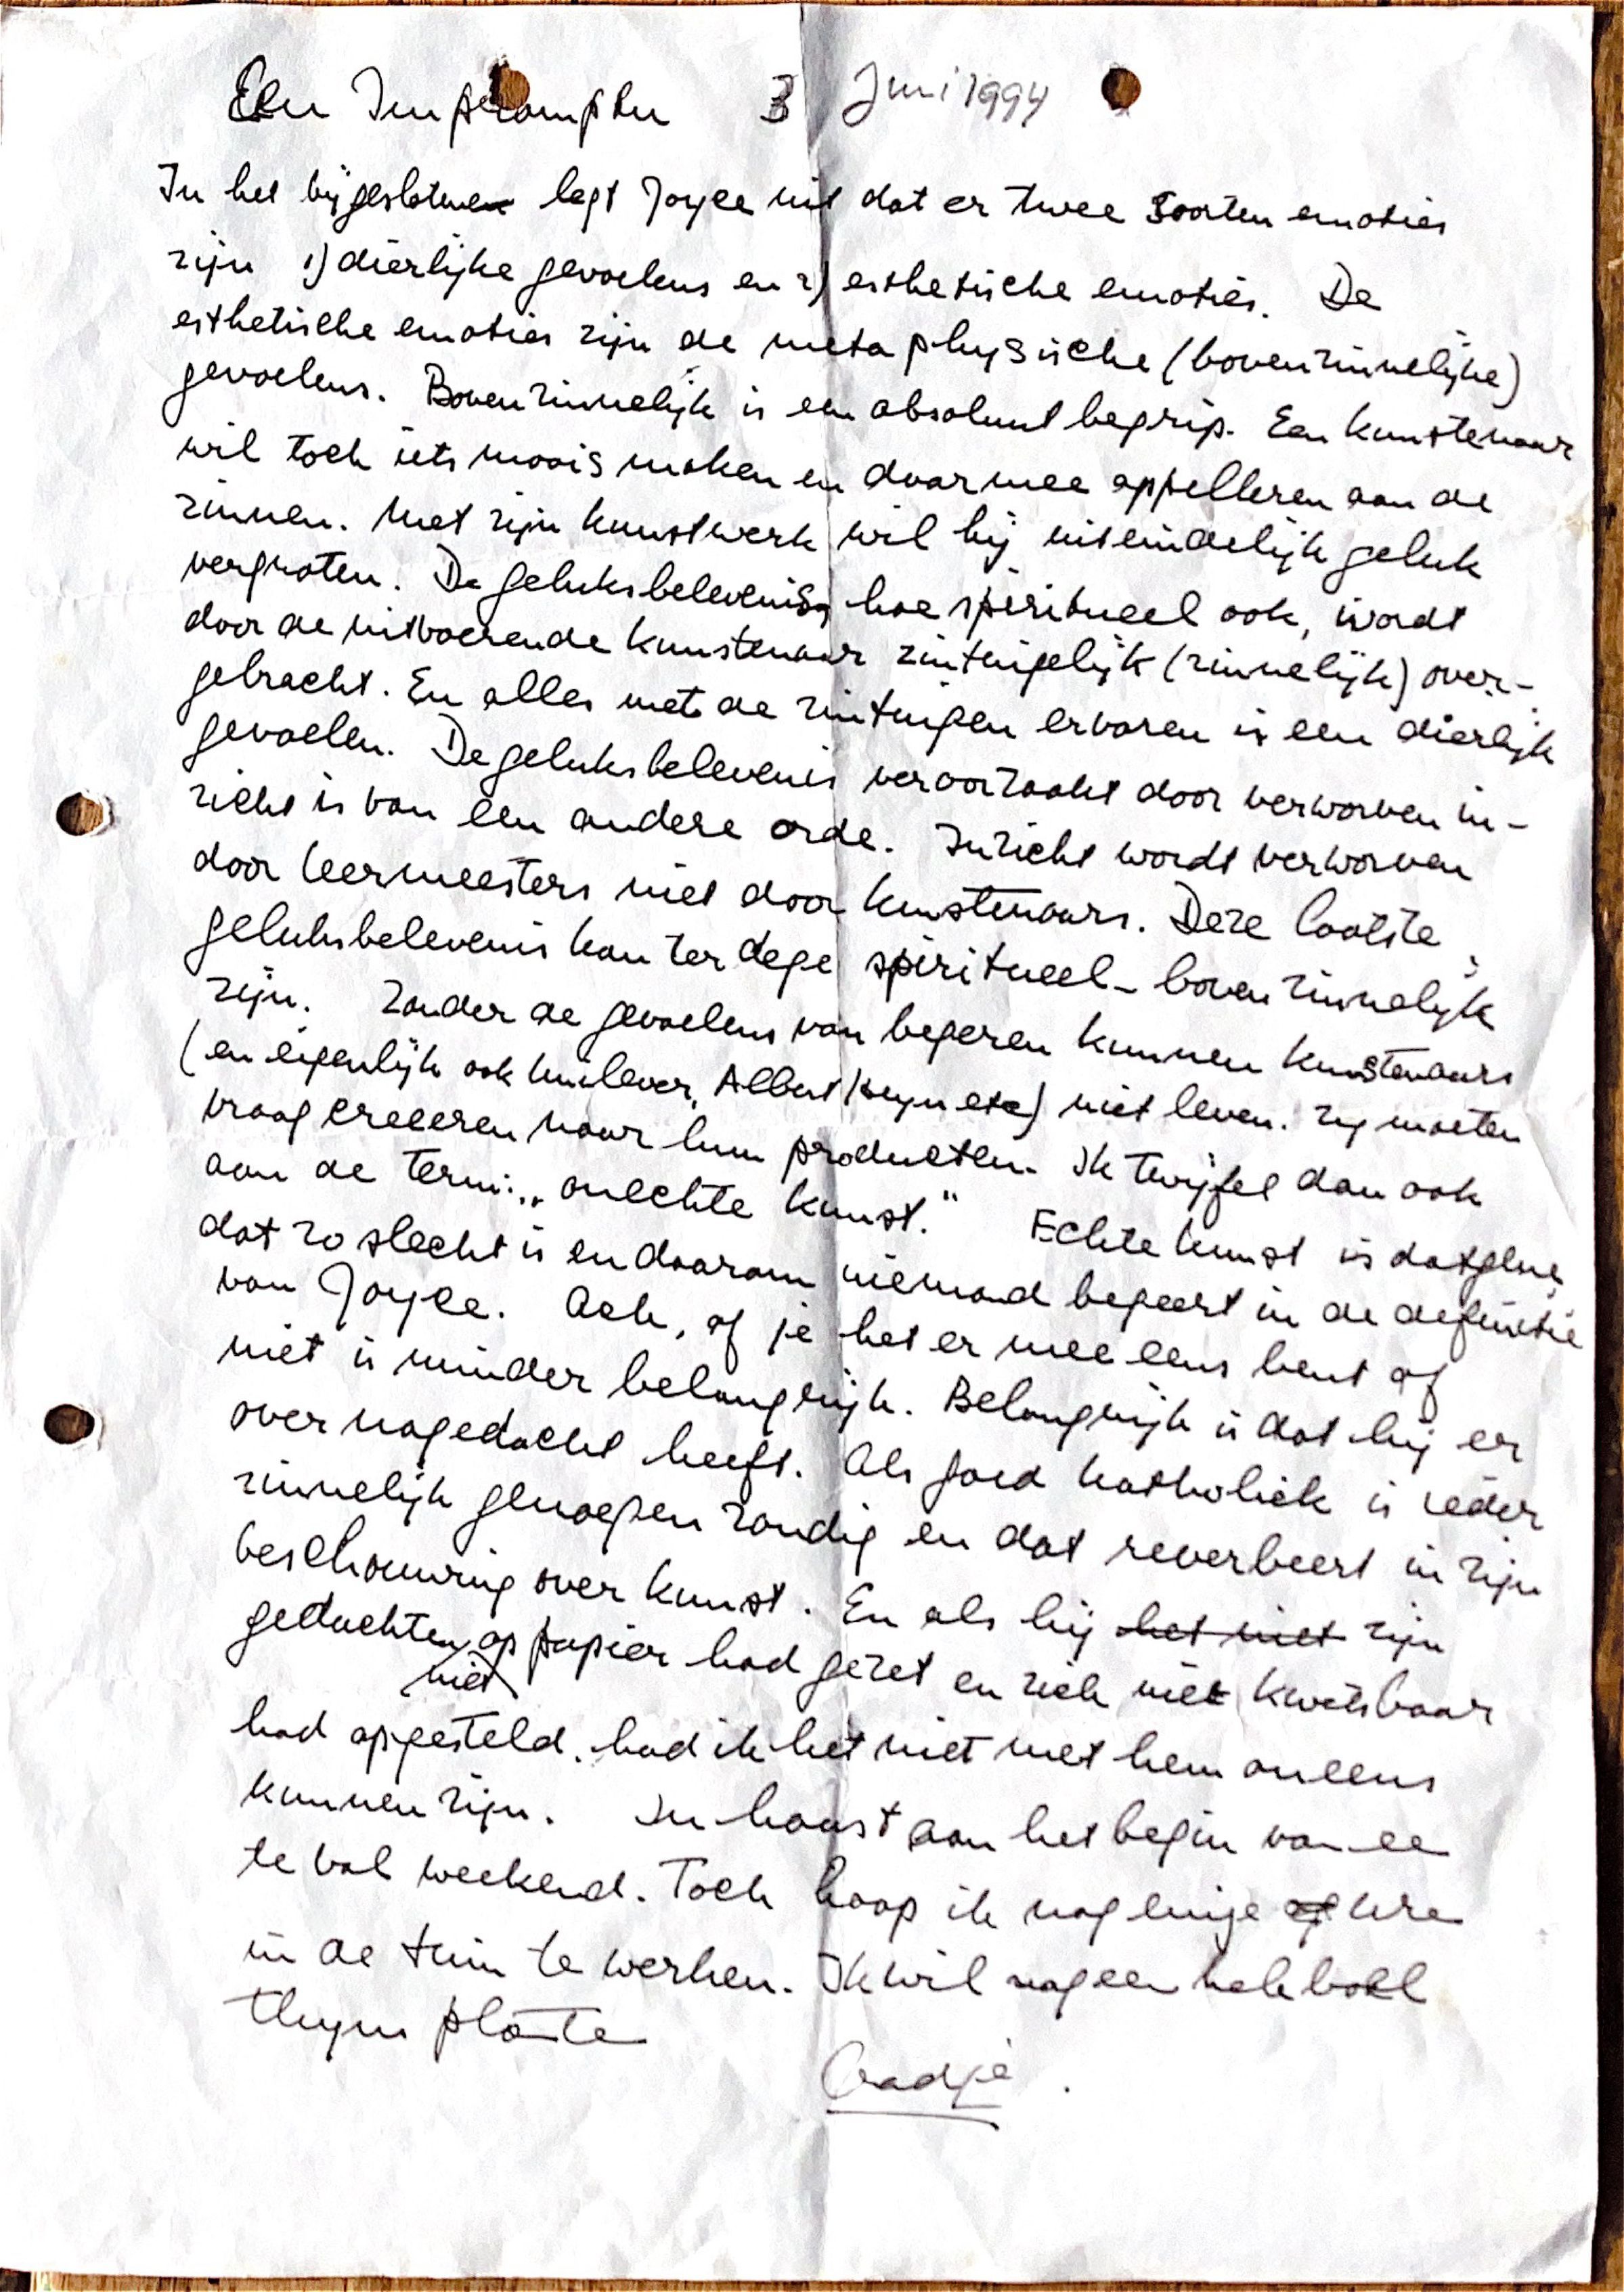 Een Impromptu 3 Juni 1994
In het bijgeslotene legt Joyce uit dat er twee soorten emoties
zijn 1) dierlijke gevoelens en 2) esthetische emoties. De
esthetische emoties zijn de metaphysische (bovenzinnelijke)
gevoelens. Bovenzinnelijk is een absoluut begrip. Een kunstenaar
wil toch iets moois maken en daarmee appelleren aan de
zinnen. Met zijn kunstwerk wil hij uiteindelijk geluk
vergroten. De geluksbelevenis, hoe spiritueel ook, wordt
door de uitvoerende kunstenaar zintuigelijk (zinnelijk) over-
gebracht. En alles met de zintuigen ervaren is een dierlijk
gevoelen. De geluksbelevenis veroorzaakt door verworven in-
zicht is van een andere orde. Inzicht wordt verworven
door leermeesters niet door kunstenaars. Deze laatste
geluksbelevenis kan ter dege spiritueel - bovenzinnelijk
zijn. Zonder de gevoelens van begeren kunnen kunstenaars
(en eigenlijk ook Unilever, Albert Heijn etc) niet leven. Zij moeten
vraag creeeren naar hun producten. Ik twijfel dan ook
aan de term: „onechte kunst." Echte kunst is datgene
dat zo slecht is en daarom niemand begeert in de definitie
van Joyce. Ach, of je het er mee eens bent of
niet is minder belangrijk. Belangrijk is dat hij er
over nagedacht heeft. Als goed katholiek is ieder
zinnelijk genoegen zondig en dat reverbeert in zijn
beschouwing over kunst. En als hij het niet zijn
gedachten niet op papier had gezet en zich niet kwetsbaar
had opgesteld, had ik het niet met hem oneens
kunnen zijn. In haast aan het begin van ee
te vol weekend. Toch hoop ik nog enige ure
in de tuin te werken. Ik wil nog een hele boel
thym plante